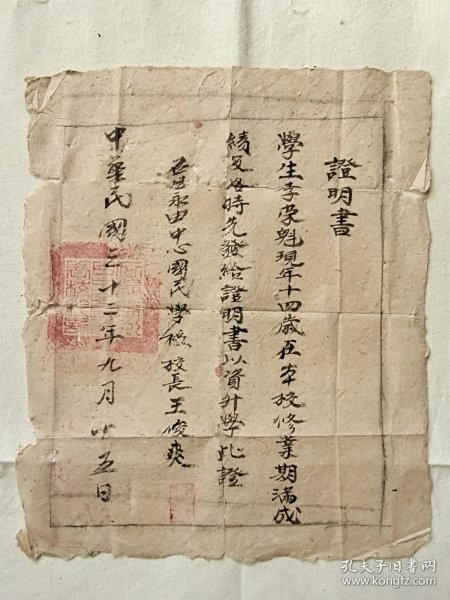 證明書
學生李榮魁現年十四歲在本校修業期滿成
績及格時先發給證明書以資升學此證
永由中心國民學校校長王俊爽
中華民國三十二年九月十五日
孔夫子旧书网
www.kongfz.com